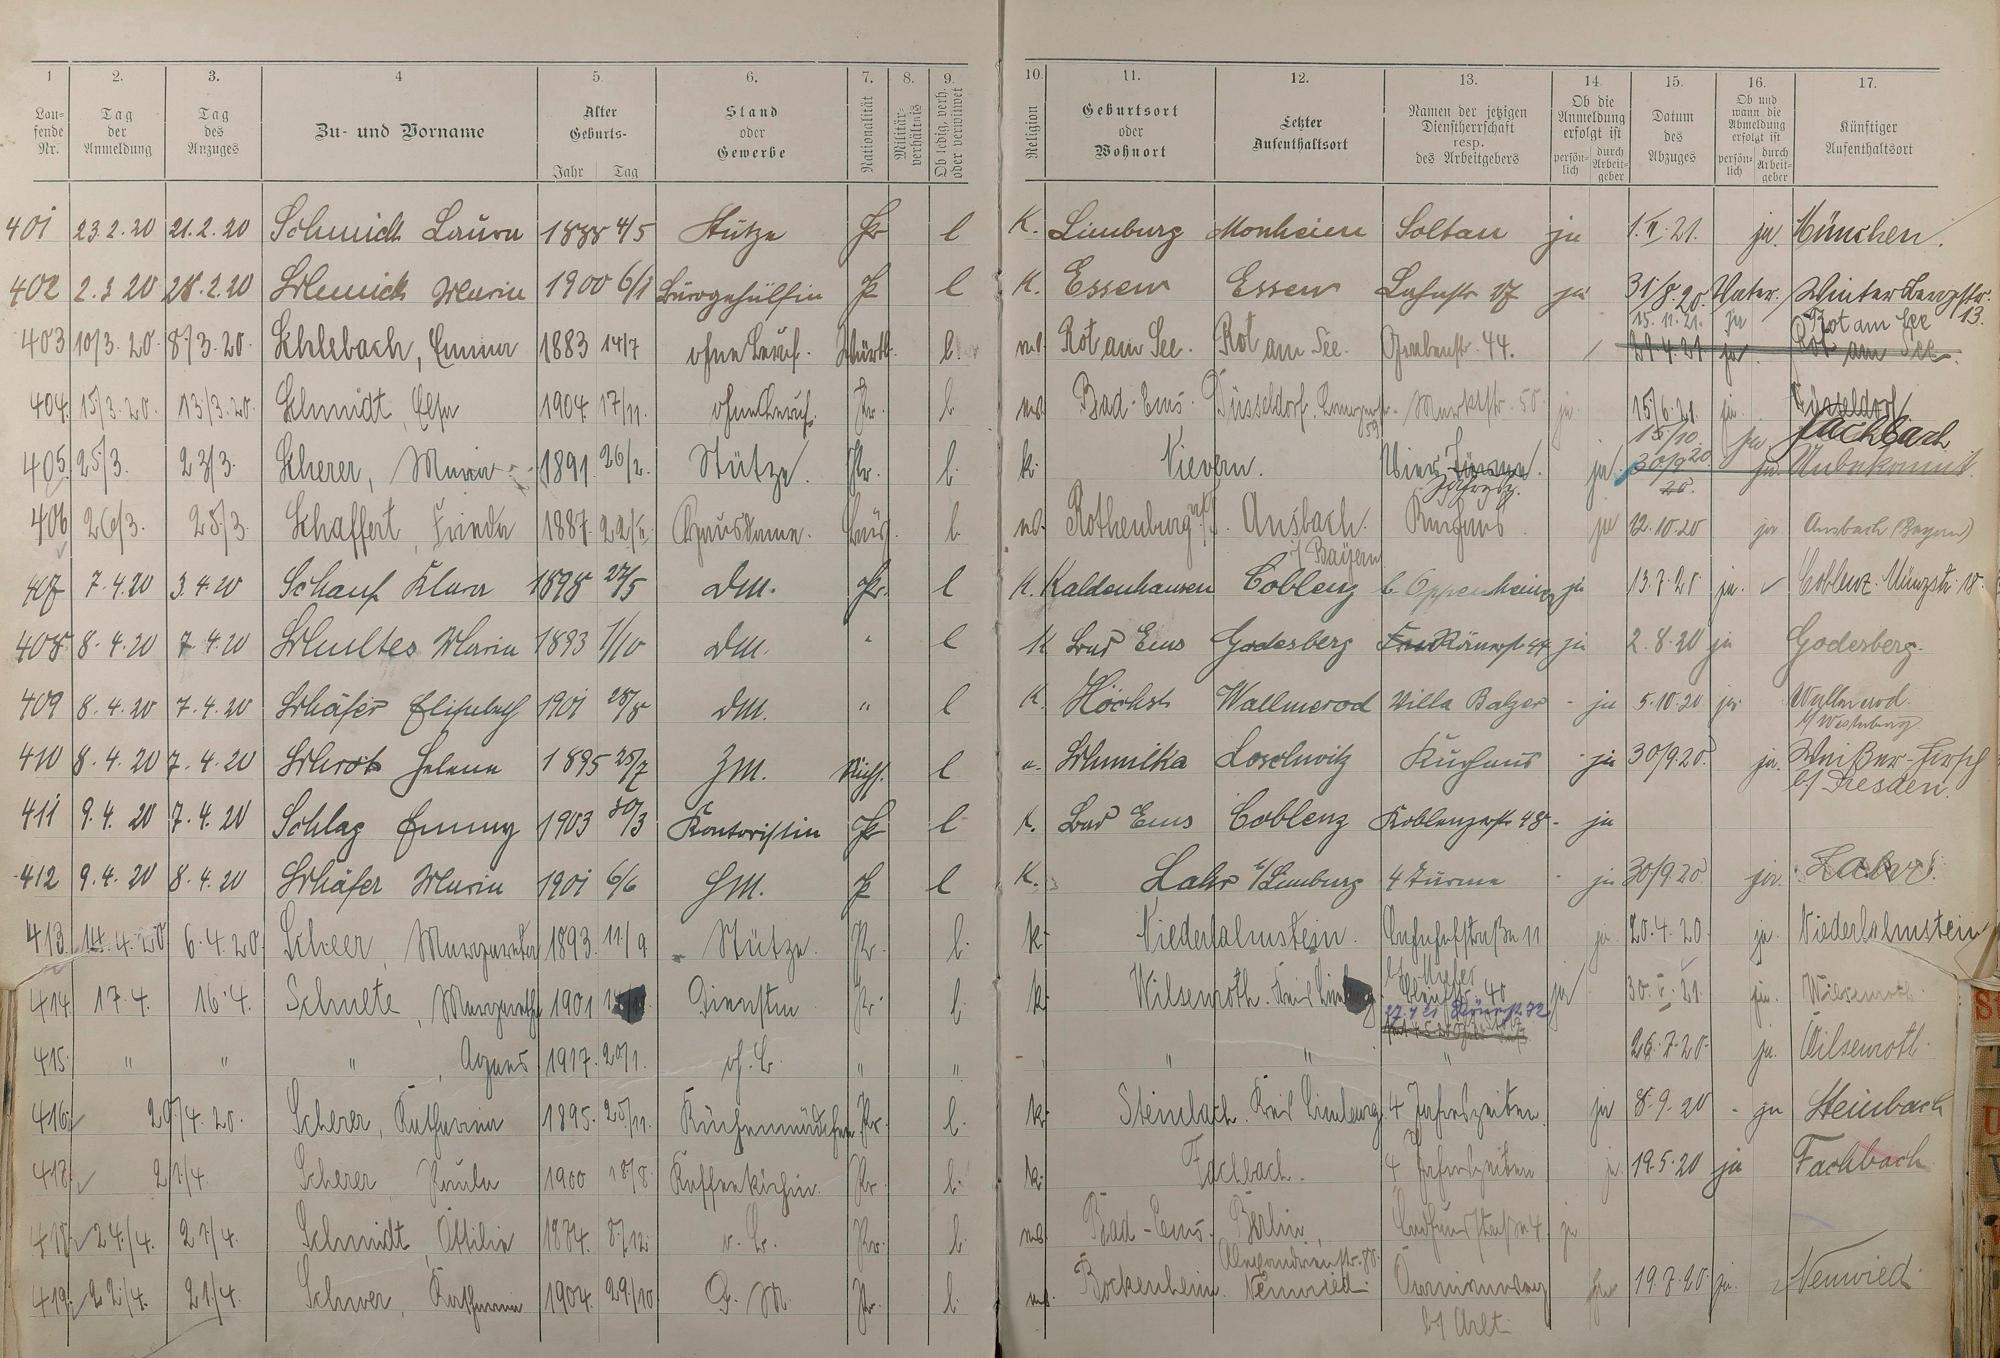 1 2. 3. 4 5. 6. 7. 8. 9. 10. 11. 12. 13. 14. 15. 16. 17.
Lau-
fende
Nr.
Tag
der
Anmeldung
Tag
des
Anzuges
Zu- und Vorname
Alter
Geburts-
Jahr Tag
Stand
oder
Gewerbe
Nationalität
Militär-
verhältnis
Ob ledig, verh.
oder verwitwet
Religion
Geburtsort
oder
Wohnort
Letzter
Aufenthaltsort
Namen der jetzigen
Dienstherrschaft
resp.
des Arbeitgebers
Ob die
Anmeldung
erfolgt ist
persön-
lich
durch
Arbeit-
geber
Datum
des
Abzuges
Ob und
wann die
Abmeldung
erfolgt ist
persön-
lich
durch
Arbeit-
geber
Künftiger
Aufenthaltsort
401 23.2.20 21.2.20 Schmidt Laura 1888 4/5 Stütze Pr l K. Limburg Monheim Soltau ja 1.II.21. ja. München.
402 2.3 20 28.2.20 Schmidt Maria 1900 6/1 Bürogehülfin Pr l K. Essen Essen Lahnstr ja 31/8.20. Vater. Winterbergstr.
13.
15.11.21. ja Rot am See
403 10/3.20. 8/3.20. Schlebach, Emma 1883 14/7 ohne Beruf. Württ. l. Rot am See. Rot am See. Grabenstr. 44. 29.4.21 ja. Rot am See.
404. 15/3.20. 13/3.20. Schmidt, Elsa 1904 17/11. ohne Beruf. Pr. l. Bad-Ems. Düsseldorf, Marktstr. 50 ja. 15/6.21. ja. Düsseldorf
15/10. 20 ja. Fachbach
405. 25/3. 23/3. Scherer, Maria 1891 26/2. Stütze. Pr. l. k. Nievern. Vier Türme. ja. 30/9 ja. Unbekannt.
Jahresz.
406 26/3. 25/3. Schaffert, Frieda 1887. Hausdame. l. Rothenburg Ansbach. Kurhaus. ja 12.10.20 ja. Ansbach (Bayern)
i/ Bayern
407 7.4.20 3.4.20 Schauf Klara 1898 27/5 DM. Pr. l K. Kaldenhausen Coblenz b. Oppenheim ja 13.7.20 ja. Coblenz. Münzstr. 18.
408. 8.4.20 7.4.20 Schultes Maria 1893 1/10 DM. " l K Bad Ems Godesberg Römerstr 44 ja 2.8.20 ja Godesberg.
409 8.4.20 7.4.20 Schäfer Elisabeth 1901 28/8 DM. " l K. Höchst Wallmerod Villa Balzer - ja 5.10.20 ja Wallmerod.
b/ Westerburg
410 8.4.20 7.4.20 Schrot Helene 1895 25/7 ZM. Sächs. l Schmilka Loschwitz Kurhaus - ja 30/9 20. ja. Weißer-Hirsch
b/ Dresden.
411 9.4.20 7.4.20 Schlag Emmy 1903 30/3 Kontoristin Pr l K. Bad Ems Coblenz Koblenzerstr 48 - ja
412 9.4.20 8.4.20 Schäfer Maria 1901 6/6 HM. Pr l K. Lahr b/Limburg 4 Türme - ja 30/9.20 ja.
413. 14.4.20 6.4.20. Scheer, Margareta 1893. 11/9 Stütze. Pr. l. k. Niederlahnstein. Bahnhofstraße 11 ja 20.4.20. ja. Niederlahnstein
414. 17.4. 16.4. Schulte, Margarethe 1901 Dienstm Pr. l. k. Wilsenroth. Kreis Limburg. 40 ja 30.5.21. ja. Wilsenroth.
27.4 21 Römerstr. 72
415. " " ", Agnes 1917. 20/1. oh. B. " ". " " " 26.7.20. ja. Wilsenroth.
416. 20/4.20. Scherer, Katharina 1895. 25/11. Küchenmädchen Pr. l. k. Steinbach. Kreis Limburg. 4 Jahreszeiten. ja 8.9.20 - ja Steinbach
21/4. Scherer Paula 1900 18/8. Kaffeeköchin. Pr. l. k. Fachbach. 4 Jahreszeiten ja. 19.5.20 ja Fachbach
418. 24/4. 21/4. Schmidt, Ottilie 1884. 8/12. o. B. Pr. l. Bad-Ems. Berlin, ja
Alexandrinenstr. 80.
419. 22/4. 21/4. Katharina 1904. 29/10. D. M. Pr. l. Bockenheim. Neuwied. 19.7.20 ja. Neuwied.
b/ Arlt